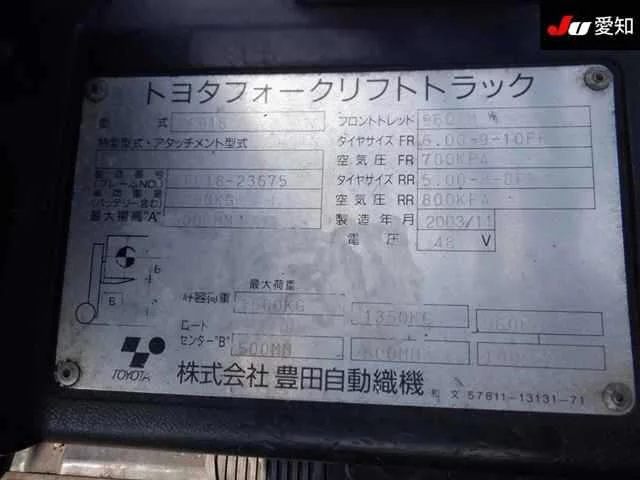 Ju 愛知
トヨタフォークリフトトラック
型 式
フロントトレッド 960
特型型式・アタッチメント型式
タイヤサイズ FR 6.00-9-10PR
空気圧 FR 700KPA
製造番号 (フレームNO.) 18-23575
タイヤサイズ RR 5.00-
車両重量 (バッテリー含む)
空気圧 RR 800KPA
最大揚高"A"
製造年月 2003/11
電圧 48 V
最大荷重
許容荷重 1500KG 1350KG
ロードセンター"B" 500MM 600MM
TOYOTA 株式会社 豊田自動織機
和文 57811-13131-71
A
B